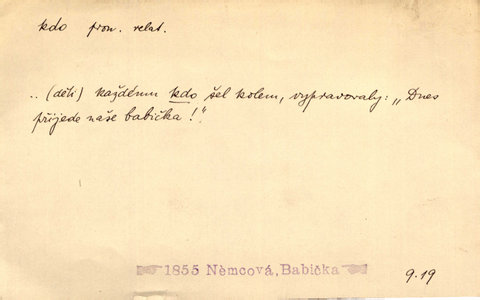 kdo pron. relat.
.. (děti) každému kdo šel kolem, vypravovaly: „Dnes
přijede naše babička!“
1855 Němcová, Babička
9.19